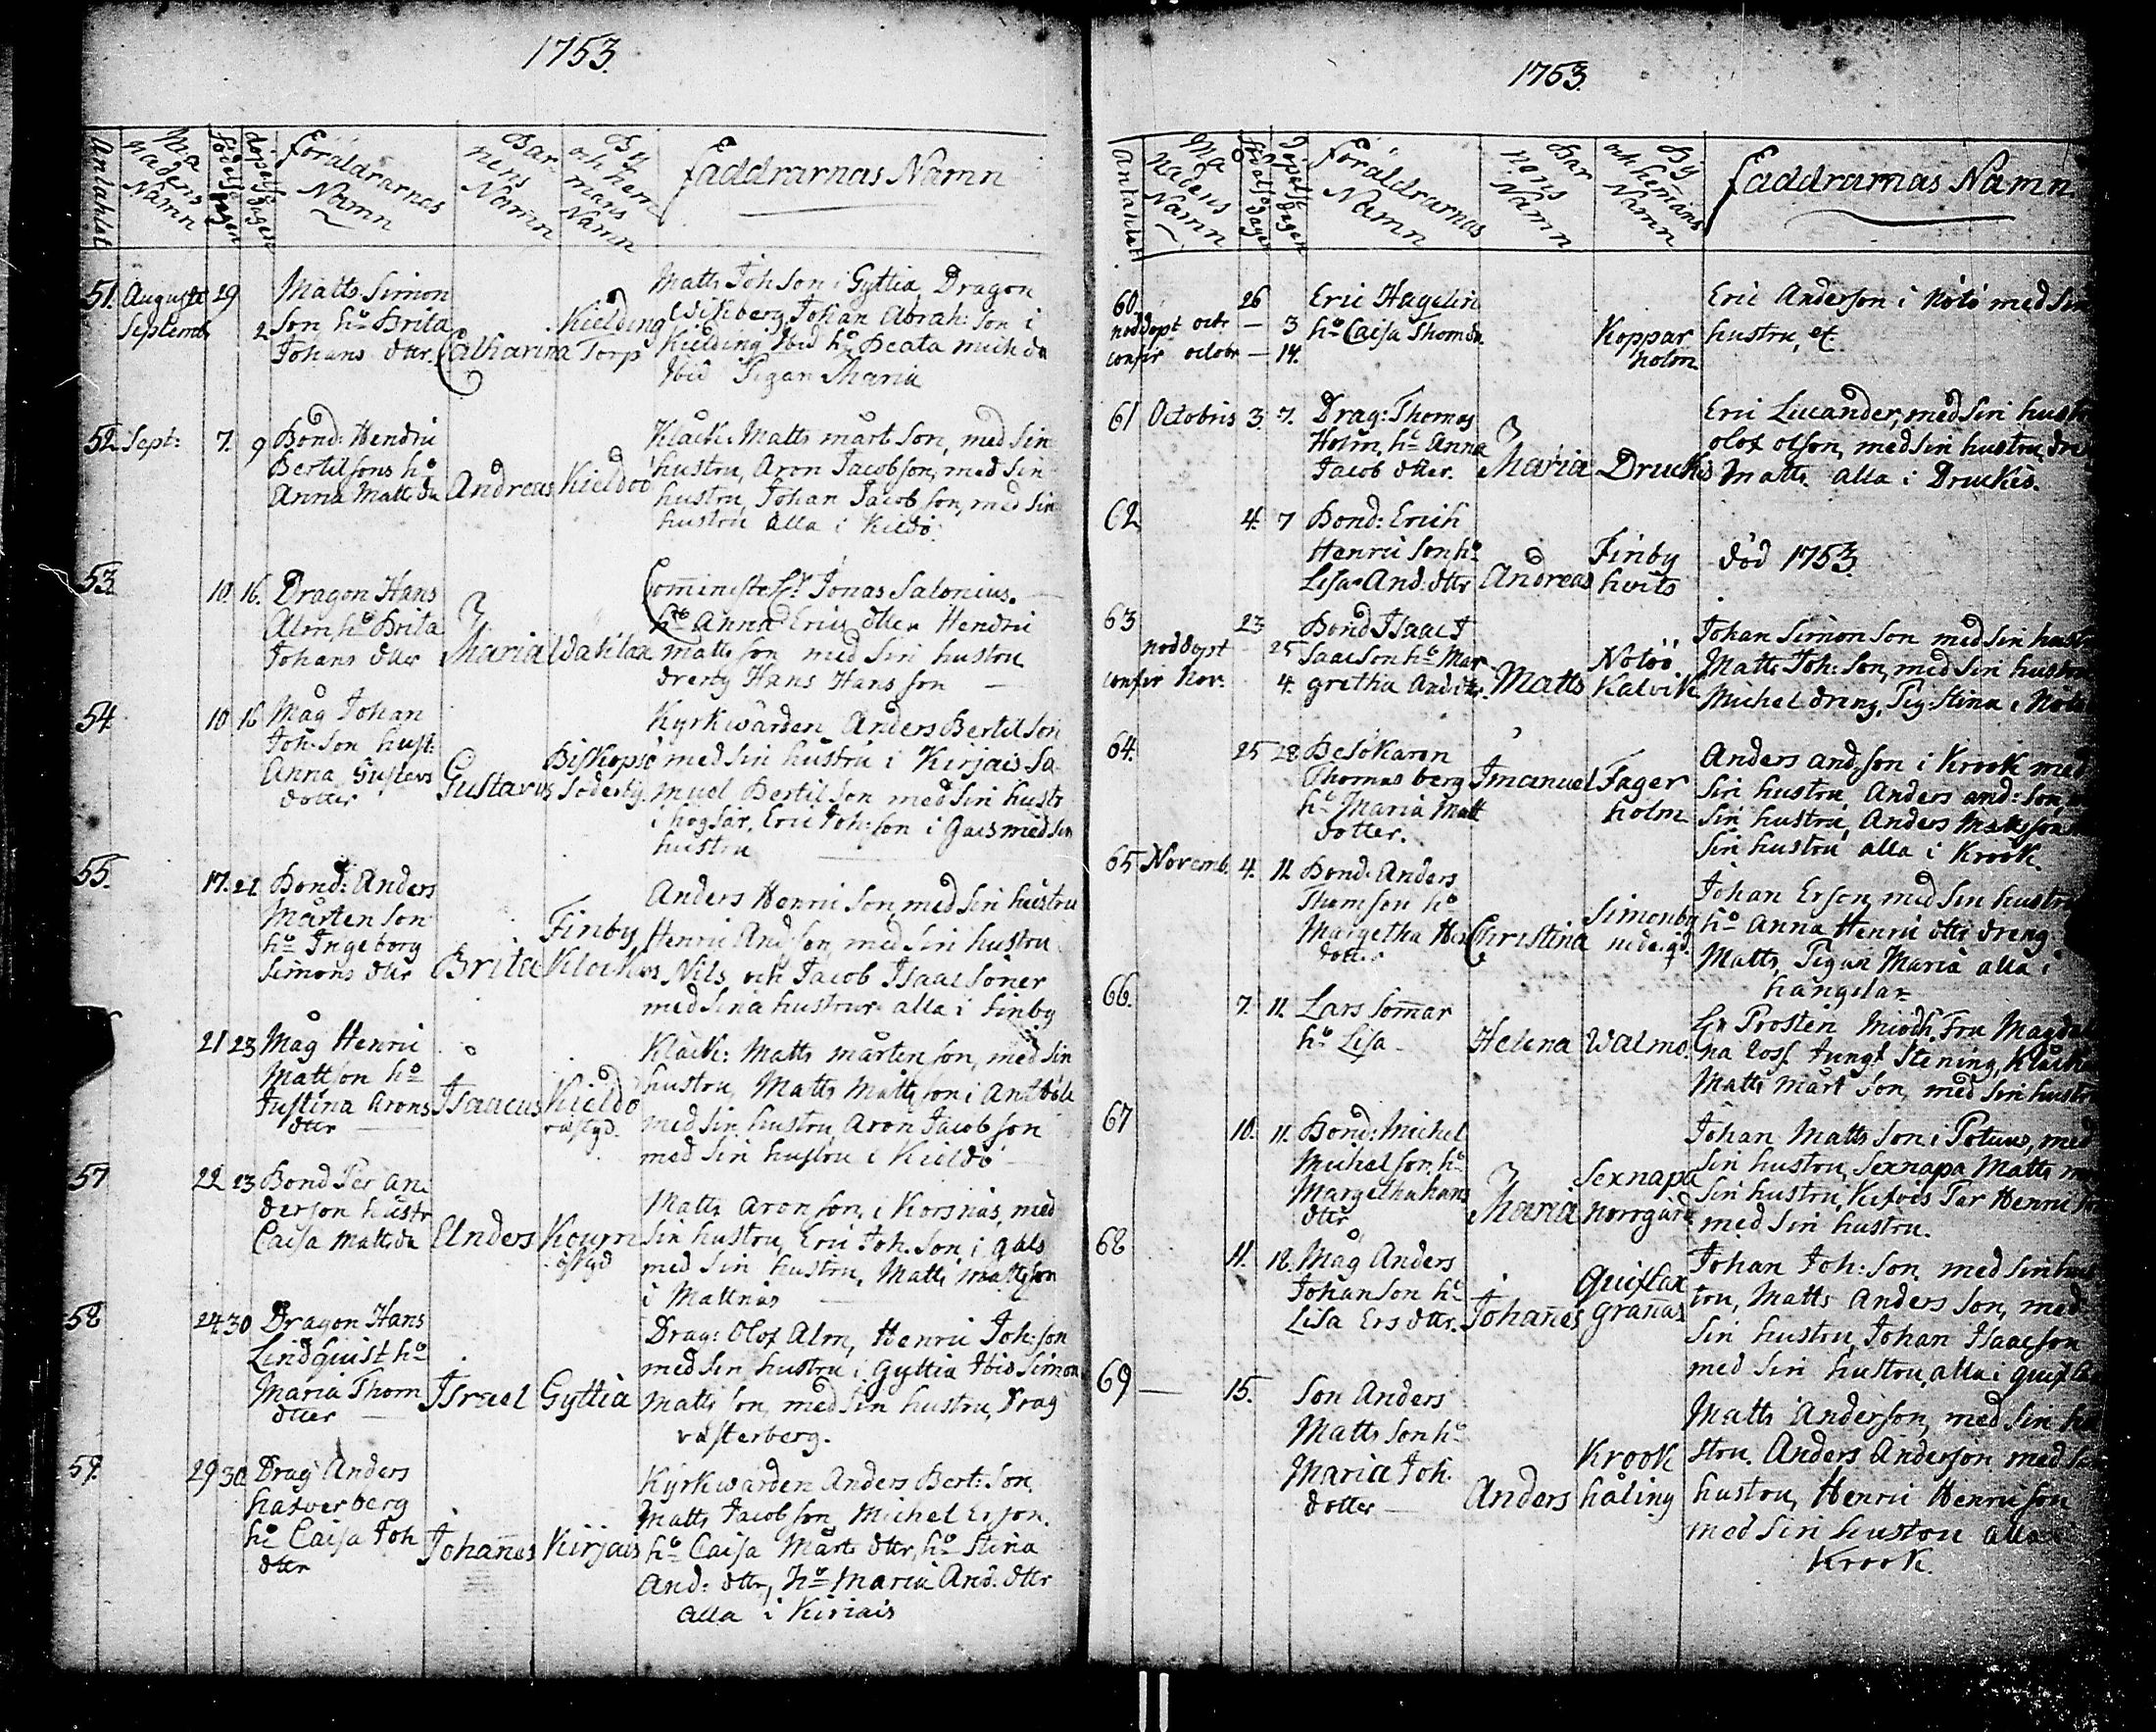 1753.
Antahlet
Månadens Namn
födelse dagen
döpelse dagen
Föräldrarnas Namn
Barnens Namn
By och hemmans Namn
Faddrarnas Namn
51. Augusti 29
Septemb 2
Matts Simon
son ho Brita
Johans dtter.
Catharina
Kielding
Torp
Matts Johson i Gyttia Dragon
Wikberg Johan Abrah: son i
Kielding Ibid ho Beata Mich da
Ibid Pigan Maria
52. Sept: 7. 9
Bond: Hendric
Bertilsons ho
Anna Matts da
Andreas
Kieldöö
Klåck: Matts mårt son, med sin
hustru, Aron Jacobson, med sin
hustru, Johan Jacobson, med sin
hustru alla i Kildö.
53. 10. 16.
Dragon Hans
Alm ho Brita
Johans dtter
Maria
Wahlax
Cominist: Hr Jonas Salonius.
ho Anna Erics dtter Hendric
mattsson med sin hustru
dreng Hans Hansson
54 10 16
Måg Johan
Joh: son hust:
Anna Gustavs
dotter
Gustavus
Biskopsö
Södesty.
Kyrkwärden Anders Bertilson
med sin hustru i Kirjais Sa
muel Bertilson med sin hustr
i högsar, Eric Joh: son i Gaes med sin
hustru
55. 17. 21
Bond: Anders
Mårten son
ho Ingeborg
Simons dtter
Brita
Finby
Klockars
Anders Henric son med sin hustru
Henric And: son, med sin hustru
Nils och Jacob Isaac söner
med sina hustrur alla i Finby
21 23
Måg Henric
Mattson ho
Justina Arons
dtter
Isaacus
Kieldö
västgd.
Klåck: Matts mårtenson, med sin
hustru, Matts Mattsson i Antböle
med sin hustru Aron Jacobson
med sin hustru i Kieldö
57 22 23
Bond Per An
derson hustr
Caisa Matts da
Anders
Kourn
östgd
Matts Aronson i Korsnäs, med
sin hustru, Eric Joh. son i gals
med sin hustru, Matts mattsson
i Mattnäs
58 24 30
Dragon Hans
Lindquist ho
Maria Thom
dtter
Israel
Gyttia
Drag: Olof Alm, Henric Joh: son
med sin hustru i Gyttia Ibid Simon
Matts son, med sin hustru, Drag
västerberg.
59. 29 30
Drag Anders
hafverberg
ho Caisa Joh
dtter
Johañes
Kirjais
Kyrkwärden Anders Bert: son,
Matts Jacobson Michel Erson.
ho Caisa Mårts dtter, ho Stina
And: dtter, ho Maria And. dtter
alla i Kiriais
1753.
Antahlet
Månadens Namn
födelse dagen
döpelse dagen
Föräldrarnas Namn
Barnens Namn
By och hemans Namn
Faddrarnas Namn
60. 26
nöddöpt octr — 3
confir octobr — 14.
Eric Hagelin
ho Caisa Thom da
Koppar
holm.
Eric Anderson i Nötö med sin
hustru, etc
61 Octobris 3. 7.
Drag: Thomas
Holm, ho Anna
Jacob dtter.
Maria
Druckis
Eric Lucander, med sin hustr
olof olson, med sin hustru, dre
Matts alla i Druckis.
62 4. 7
Bond: Erich
Henric son ho
Lisa And: dtter
Andreas
Finby
hvits
död 1753.
63 23
nöddöpt 25
confir Nov. 4.
Bond Isaac I
saac son ho Mar
gretha And dtr
Matts
Nötöö
Kalvik
Johan Simonson med sin hustr
Matts Joh: son, med sin hustru
Michel dreng, Pig: Stina i Nötö
64. 25 28
Besökaren
Thomas berg
ho Maria Matt
dotter.
Imanuel
Fager
holm
Anders and, son i Krook med
sin hustru, Anders and: son,
sin hustru, Anders Mattsson
sin hustru alla i Krook.
65 Novemb. 4. 11.
Bond: Anders
Thomson ho
Margetha Hen
dotter
Christina
Simonby
nedergd.
Johan Erson med sin hustru
ho Anna Henric dtr dreng
Matts, Pigan Maria alla i
hångslax
66. 7. 11.
Lars Somar
ho Lisa
Helena
Walmo.
Hr Prosten Miödh. Fru Magdal
na Jungf Stening, Klåck
Matts mårt son, med sin hustru
67 10. 11.
Bond: Michel
Michelson, ho
Margetha hans
dtter
Maria
Sexnapa
norrgård
Johan Matts son i Potuus, med
sin hustru, Sexnapa Matts me
sin hustru, Kefvois Par Henric so
med sin hustru.
68 11. 18.
Måg Anders
Johanson ho
Lisa Ers dtter.
Johañes
Quiflax
grañas
Johan Joh: son med sin hus
tru, Matts Anders son, med
sin hustru, Johan Isaacson
med sin hustru, alla i quifla
69 — 15.
Son Anders
Matts son ho
Maria Joh.
dotter
Anders
Krook
håling
Matts Anderson, med sin hu
stru. Anders Anderson med si
hustru, Henric Henricson
med sin hustru alla
Krook.